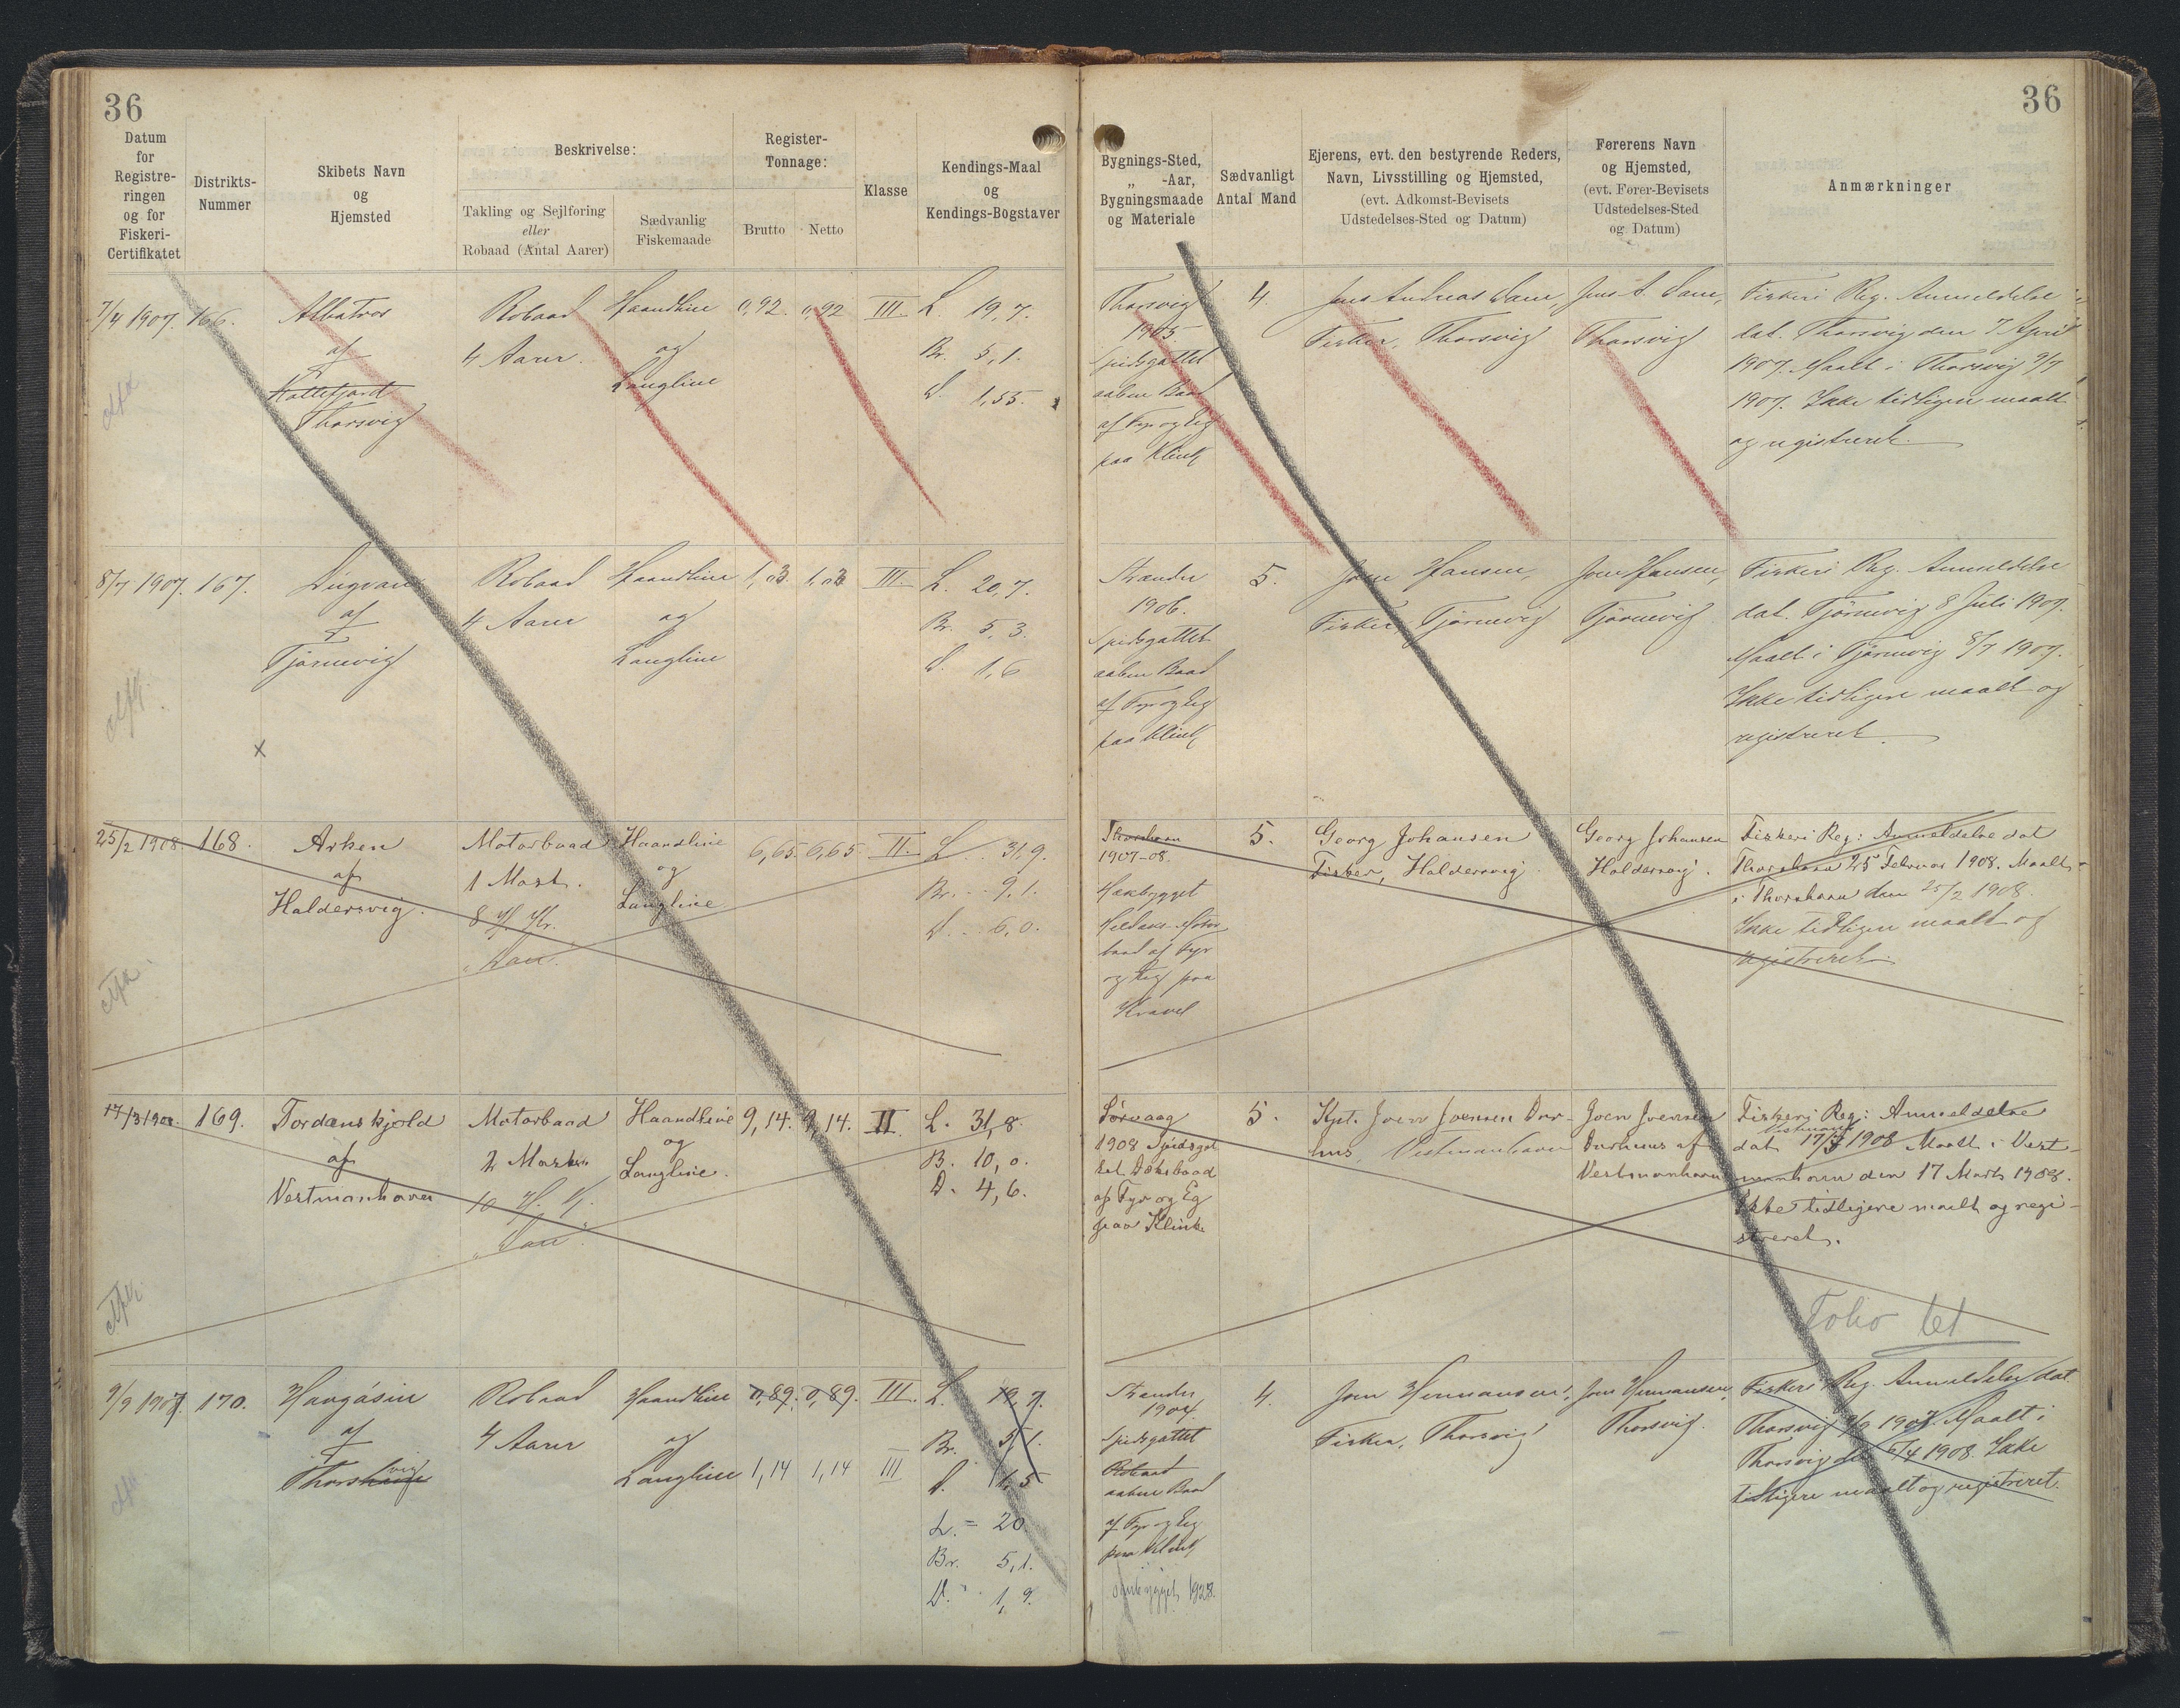 36
36
Datum
for
Registre-
ringen
og for
Fiskeri-
Certifikatet
Distrikts-
Nummer
Skibets Navn
og
Hjemsted
Beskrivelse:
Takling og Sejlføring
eller
Robaad (Antal Aarer)
Sædvanlig
Fiskemaade
Register-
Tonnage:
Brutto
Netto
Klasse
Kendings-Maal
og
Kendings-Bogstaver
Bygnings-Sted,
„ -Aar,
Bygningsmaade
og Materiale
Sædvanligt
Antal Mand
Ejerens, evt. den bestyrende Reders,
Navn, Livsstilling og Hjemsted,
(evt. Adkomst-Bevisets
Udstedelses-Sted og Datum)
Førerens Navn
og Hjemsted,
(evt. Fører-Bevisets
Udstedelses-Sted
og Datum)
Anmærkninger
7/4 1907. 166.
Albatros
af
Kollefjord
Thorsvig
Robaad
4 Aarer.
Haandline
og
Langline
0,92. 0,92 III.
L. 19,7.
Br. 5,1.
D. 1,55.
Thorsvig
1905
Spidsgattet
aaben Baad
af Fyr og Eg
paa Klink
4.
Jens Andreas Dam,
Fisker, Thorsvig
Jens A. Dam,
Thorsvig
Fiskeri Reg. Anmeldelse
dat. Thorsvig den 7 April
1907. Maalt i Thorsvig 9/7
1907. Ikke tidligere maalt
og registreret.
8/7 1907. 167.
af
Tjørnevig
Robaad
4 Aarer
Haandline
og
Langline
1,03. 1,03 III.
L. 20,7.
Br. 5,3.
D. 1,6
x
Strænder
1906.
Spidsgattet
aaben Baad
af Fyr og Eg
paa Klink
5.
Joen Hansen,
Fisker, Tjørnevig
Joen Hansen,
Tjørnevig
Fiskeri Reg. Anmeldelse
dat. Tjørnevig 8 Juli 1907.
Maalt i Tjørnevig 8/7 1907.
Ikke tidligere maalt og
registreret.
25/2 1908 168.
Arken
af
Haldersvig.
Motorbaad
1 Mast.
8 H. Kr.
„Dan“.
Haandline
og
Langline
6,65. 6,65. II.
L. 31,9.
Br. 9,1.
D. 6,0.
Thorshavn
1907-08.
Hækbygget
Heldæks-Motor
baad af Fyr
og Eg paa
Kravel
5.
Georg Johansen
Fisker, Haldersvig
Georg Johansen
Haldersvig.
Fiskeri Reg: Anmeldelse dat
Thorshavn 25 Februar 1908. Maalt
i Thorshavn den 25/2 1908.
Ikke tidligere maalt og
registreret.
17/3 1908. 169.
Tordenskjold
af
Vestmanhavn
Motorbaad
2 Master.
10 H. K.
„Dan“.
Haandline
og
Langline.
9,14. 9,14. II.
L. 31,8.
B. 10,0.
D. 4,6.
Sørvaag
1908 Spidsgat
tet Dæksbaad
af Fyr og Eg
paa Klink
5.
Kpt. Joen Joensen Dur-
hus, Vestmanhavn
Joen Joensen
Durhuus af
Vestmanhavn
Fiskeri Reg: Anmeldelse
dat 17/3 1908 Maalt i Vest-
manhavn den 17 Marts 1908.
Ikke tidligere maalt og regi-
streret.
Folio 61
9/9 1907. 170.
Havgásin
af
Thorshavn
vig
Robaad
4 Aarer
Haandline
og
Langline
0,89. 0,89. III.
1,14 1,14 III
L. 19,7.
Br. 5,1.
D. 1,5
L. = 20.
Br. 5,1.
D. 1,9.
Strænder
1904
Spidsgattet
Robaad
aaben Baad
af Fyr og Eg
paa Klink
ombygget 1928.
4.
Joen Hermansen,
Fisker, Thorsvig
Joen Hermansen,
Thorsvig.
Fiskeri Reg. Anmeldelse dat.
Thorsvig 9/9 1907. Maalt i
Thorsvig den 6/4 1908. Ikke
tidligere maalt og registreret.